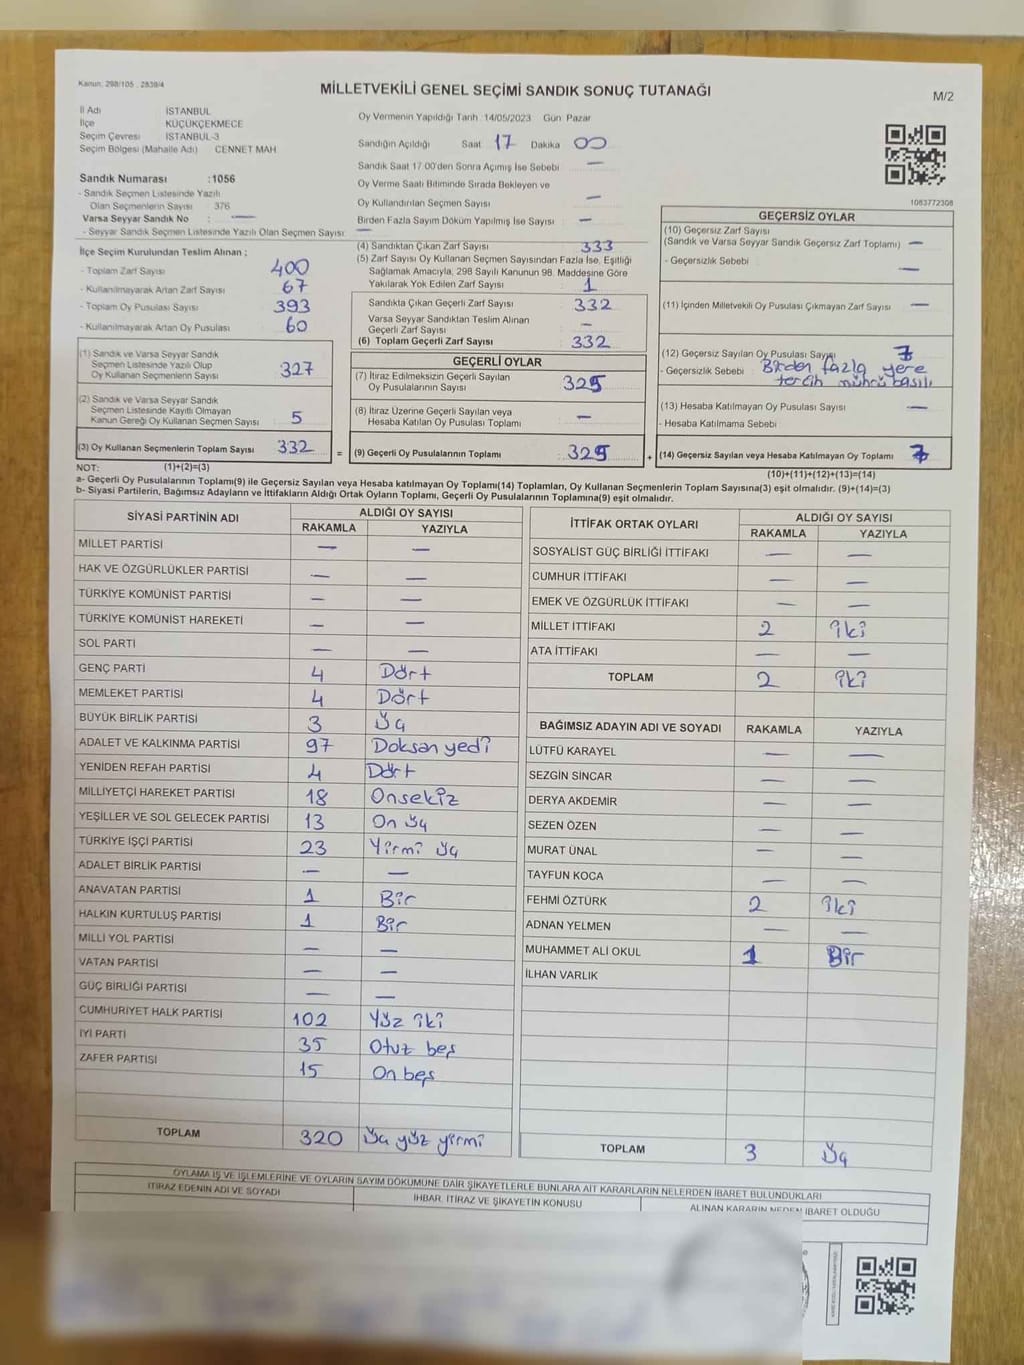 Kanun: 298/105 , 2839/4
MİLLETVEKİLİ GENEL SEÇİMİ SANDIK SONUÇ TUTANAĞI
M/2
İl Adı İSTANBUL
İlçe KÜÇÜKÇEKMECE
Seçim Çevresi İSTANBUL-3
Seçim Bölgesi (Mahalle Adı) CENNET MAH.
Sandık Numarası :1056
- Sandık Seçmen Listesinde Yazılı
Olan Seçmenlerin Sayısı 376
Varsa Seyyar Sandık No : —
- Seyyar Sandık Seçmen Listesinde Yazılı Olan Seçmen Sayısı: —
Oy Vermenin Yapıldığı Tarih 14/05/2023 Gün Pazar
Sandığın Açıldığı Saat 17 Dakika 00
Sandık Saat 17.00'den Sonra Açımış İse Sebebi —
Oy Verme Saati Bitiminde Sırada Bekleyen ve
Oy Kullandırılan Seçmen Sayısı —
Birden Fazla Sayım Döküm Yapılmış İse Sayısı —
1083772308
İlçe Seçim Kurulundan Teslim Alınan ;
- Toplam Zarf Sayısı 400
- Kullanılmayarak Artan Zarf Sayısı 67
- Toplam Oy Pusulası Sayısı 393
- Kullanılmayarak Artan Oy Pusulası 60
(1) Sandık ve Varsa Seyyar Sandık
Seçmen Listesinde Yazılı Olup
Oy Kullanan Seçmenlerin Sayısı 327
(2) Sandık ve Varsa Seyyar Sandık
Seçmen Listesinde Kayıtlı Olmayan
Kanun Gereği Oy Kullanan Seçmen Sayısı 5
(3) Oy Kullanan Seçmenlerin Toplam Sayısı 332
(4) Sandıktan Çıkan Zarf Sayısı 333
(5) Zarf Sayısı Oy Kullanan Seçmen Sayısından Fazla İse, Eşitliği
Sağlamak Amacıyla, 298 Sayılı Kanunun 98. Maddesine Göre
Yakılarak Yok Edilen Zarf Sayısı 1
Sandıkta Çıkan Geçerli Zarf Sayısı 332
Varsa Seyyar Sandıktan Teslim Alınan
Geçerli Zarf Sayısı —
(6) Toplam Geçerli Zarf Sayısı 332
GEÇERLİ OYLAR
(7) İtiraz Edilmeksizin Geçerli Sayılan
Oy Pusulalarının Sayısı 325
(8) İtiraz Üzerine Geçerli Sayılan veya
Hesaba Katılan Oy Pusulası Toplamı —
= (9) Geçerli Oy Pusulalarının Toplamı 325
GEÇERSİZ OYLAR
(10) Geçersiz Zarf Sayısı
(Sandık ve Varsa Seyyar Sandık Geçersiz Zarf Toplamı) —
- Geçersizlik Sebebi —
(11) İçinden Milletvekili Oy Pusulası Çıkmayan Zarf Sayısı —
(12) Geçersiz Sayılan Oy Pusulası Sayısı 7
- Geçersizlik Sebebi : Birden fazla yere
tercih mührü basılı
(13) Hesaba Katılmayan Oy Pusulası Sayısı —
- Hesaba Katılmama Sebebi
+ (14) Geçersiz Sayılan veya Hesaba Katılmayan Oy Toplamı 7
NOT: (1)+(2)=(3) (10)+(11)+(12)+(13)=(14)
a- Geçerli Oy Pusulasının Toplamı(9) ile Geçersiz Sayılan veya Hesaba katılmayan Oy Toplamı(14) Toplamları, Oy Kullanan Seçmenlerin Toplam Sayısına(3) eşit olmalıdır. (9)+(14)=(3)
b- Siyasi Partilerin, Bağımsız Adayların ve İttifakların Aldığı Ortak Oyların Toplamı, Geçerli Oy Pusulasının Toplamına(9) eşit olmalıdır.
SİYASİ PARTİNİN ADI ALDIĞI OY SAYISI
RAKAMLA YAZIYLA
MİLLET PARTİSİ — —
HAK VE ÖZGÜRLÜKLER PARTİSİ — —
TÜRKİYE KOMÜNİST PARTİSİ — —
TÜRKİYE KOMÜNİST HAREKETİ — —
SOL PARTİ — —
GENÇ PARTİ 4 Dört
MEMLEKET PARTİSİ 4 Dört
BÜYÜK BİRLİK PARTİSİ 3 Üç
ADALET VE KALKINMA PARTİSİ 97 Doksan yedi
YENİDEN REFAH PARTİSİ 4 Dört
MİLLİYETÇİ HAREKET PARTİSİ 18 Onsekiz
YEŞİLLER VE SOL GELECEK PARTİSİ 13 On üç
TÜRKİYE İŞÇİ PARTİSİ 23 Yirmi üç
ADALET BİRLİK PARTİSİ — —
ANAVATAN PARTİSİ 1 Bir
HALKIN KURTULUŞ PARTİSİ 1 Bir
MİLLİ YOL PARTİSİ — —
VATAN PARTİSİ — —
GÜÇ BİRLİĞİ PARTİSİ — —
CUMHURİYET HALK PARTİSİ 102 Yüz iki
İYİ PARTİ 35 Otuz beş
ZAFER PARTİSİ 15 On beş
TOPLAM 320 Üç yüz yirmi
İTTİFAK ORTAK OYLARI ALDIĞI OY SAYISI
RAKAMLA YAZIYLA
SOSYALİST GÜÇ BİRLİĞİ İTTİFAKI — —
CUMHUR İTTİFAKI — —
EMEK VE ÖZGÜRLÜK İTTİFAKI — —
MİLLET İTTİFAKI 2 iki
ATA İTTİFAKI — —
TOPLAM 2 iki
BAĞIMSIZ ADAYIN ADI VE SOYADI RAKAMLA YAZIYLA
LÜTFÜ KARAYEL — —
SEZGİN SİNCAR — —
DERYA AKDEMİR — —
SEZEN ÖZEN — —
MURAT ÜNAL — —
TAYFUN KOCA — —
FEHMİ ÖZTÜRK 2 iki
ADNAN YELMEN — —
MUHAMMET ALİ OKUL 1 Bir
İLHAN VARLIK
TOPLAM 3 Üç
OYLAMA İŞ VE İŞLEMLERİNE VE OYLARIN SAYIM DÖKÜMÜNE DAİR ŞİKAYETLERLE BUNLARA AİT KARARLARIN NELERDEN İBARET BULUNDUKLARI
İTİRAZ EDENİN ADI VE SOYADI İHBAR, İTİRAZ VE ŞİKAYETİN KONUSU ALINAN KARARIN NEDEN İBARET OLDUĞU